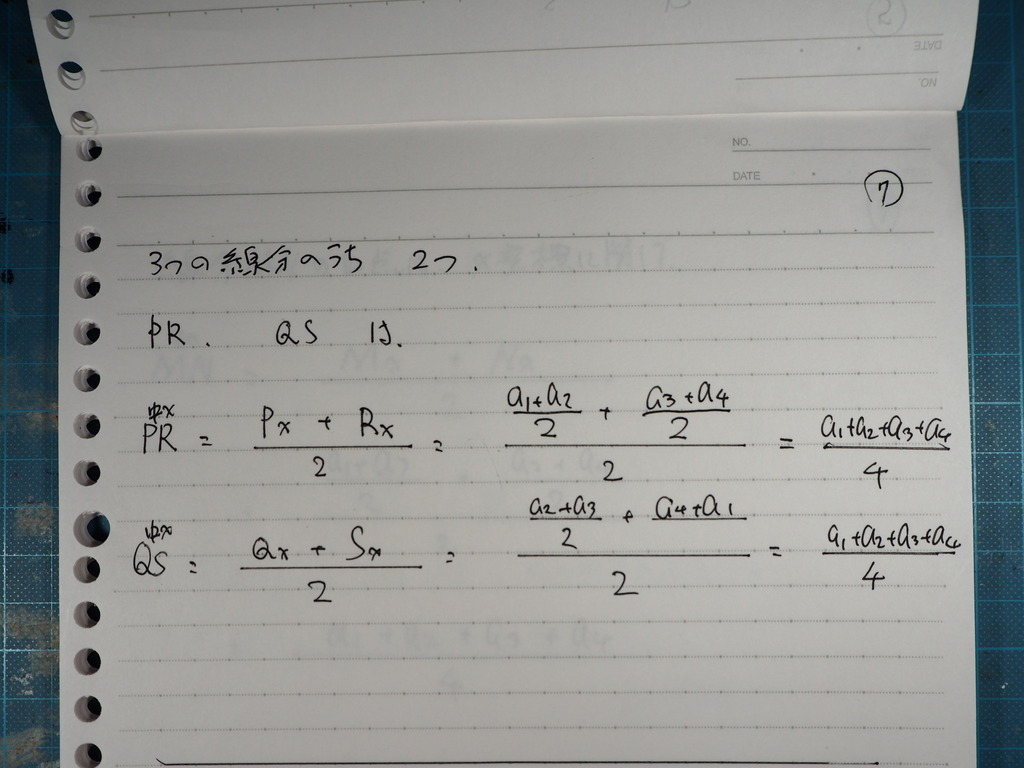 NO.
DATE
⑦
3つの線分のうち 2つ.
PR. QS は.
PR中x = (Px + Rx)/2 = ((a1+a2)/2 + (a3+a4)/2)/2 = (a1+a2+a3+a4)/4
QS中x = (Qx + Sx)/2 = ((a2+a3)/2 + (a4+a1))/2 = (a1+a2+a3+a4)/4